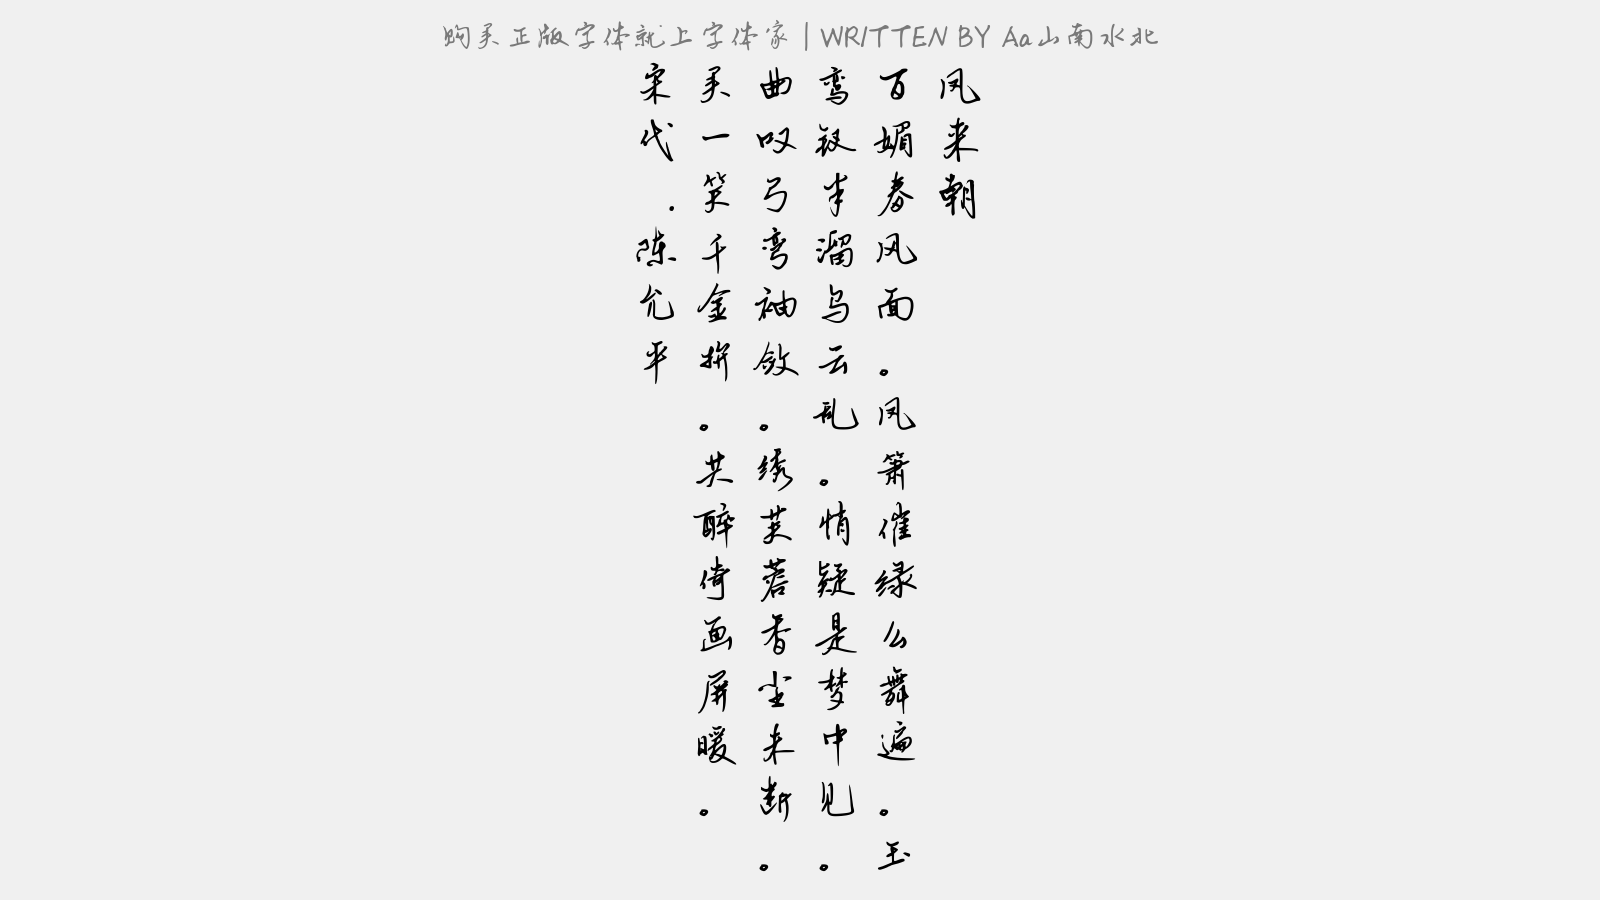 购买正版字体就上字体家 | WRITTEN BY Aa山南水北
凤来朝
百媚春风面。凤箫催绿么舞遍。玉
鸾钗半溜乌云乱。悄疑是梦中见。
曲叹弓弯袖敛。绣芙蓉香尘未断。
买一笑千金拚。共醉倚画屏暖。
宋代.陈允平